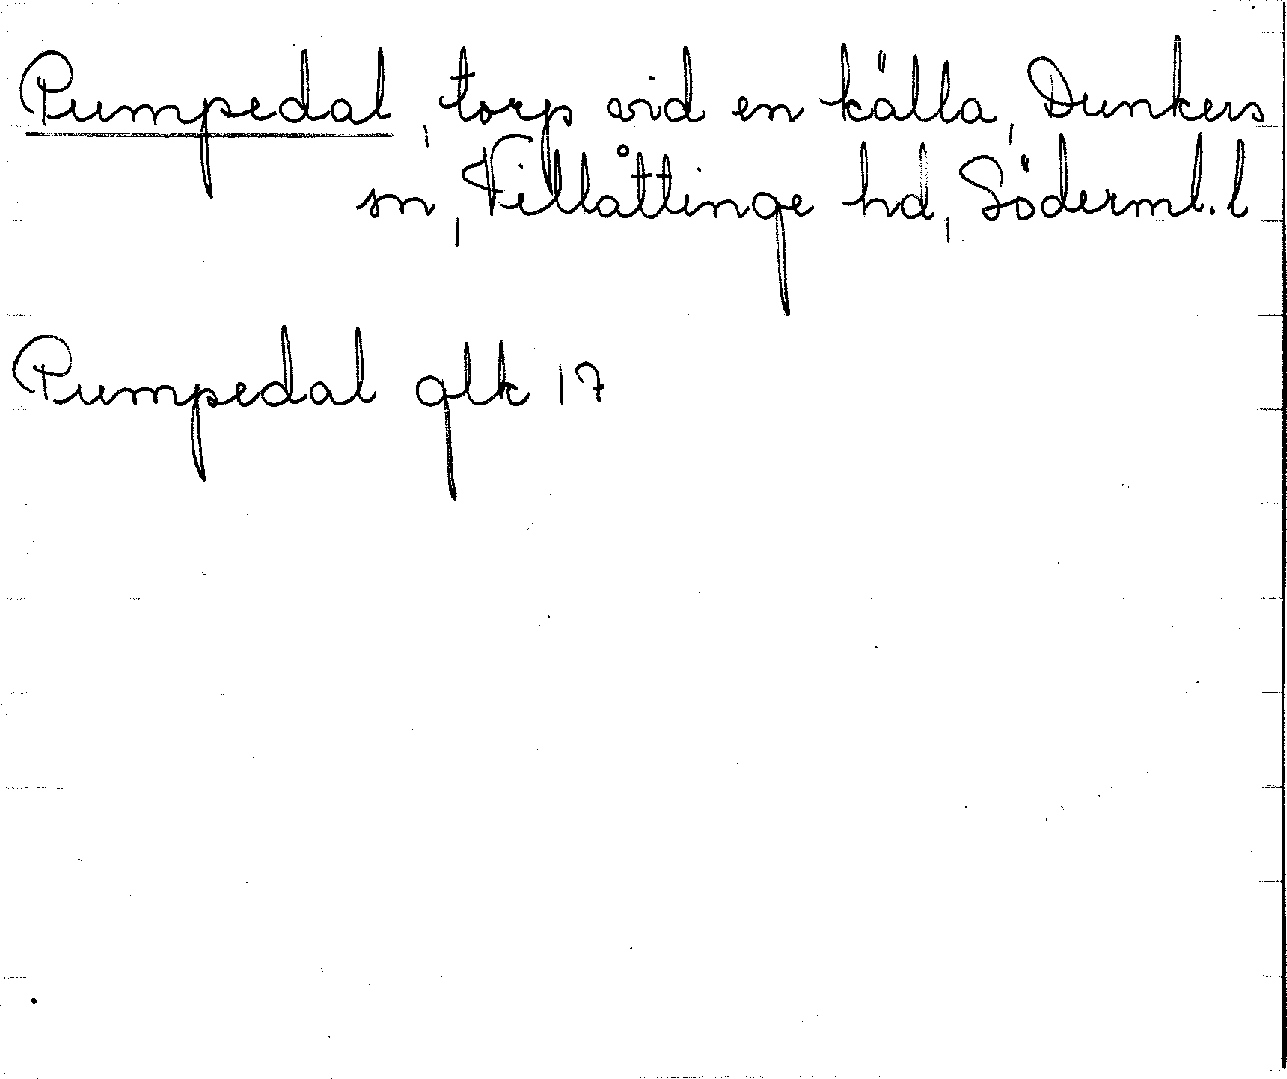 Pumpedal, torp vid en källa, Dunkers
sn, Villåttinge hd, Söderml. l
Pumpedal glk 17